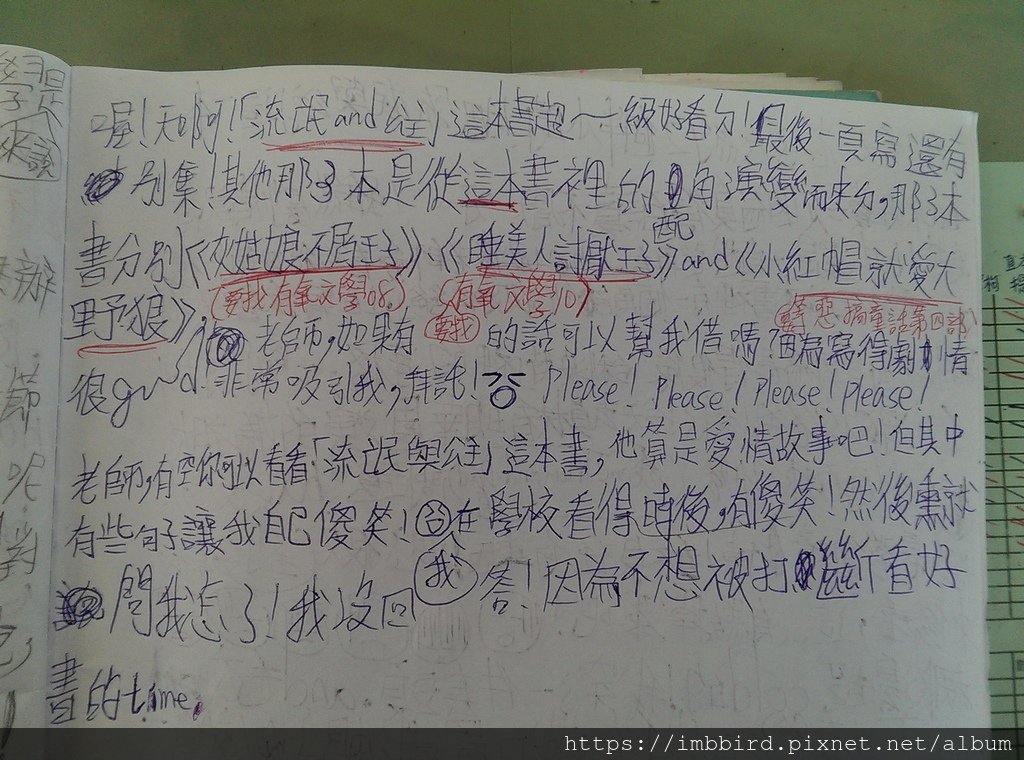 喔!天阿!「流氓and公主」這本書超～級好看ㄉ!最後一頁寫還有
別集!其他那3本是從這本書裡的配角演變而來ㄉ,那3本
書分別《灰姑娘不屑王子》、《睡美人討厭王子》and《小紅帽就愛大
(要找有氧文學08) (有氧文學10)
野狼》, 老師,如果有 要找 的話可以幫我借嗎?因為寫得劇情
惡搞童話第四部)
很good!非常吸引我,拜託! Please! Please! Please! Please!
老師,有空你可以看看「流氓與公主」這本書,他算是愛情故事吧!但其中
有些句子讓我自己傻笑! 在學校看得時後,有傻笑!然後熏就
我
問我怎了!我沒回答!因為不想被打斷看好
書的time.
https://imbbird.pixnet.net/album